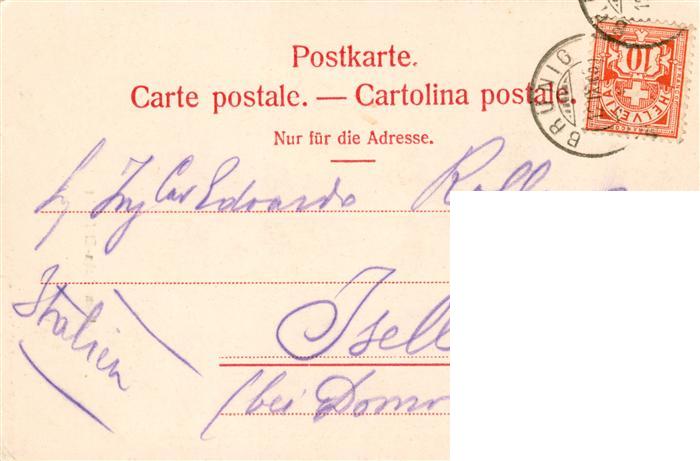 Postkarte.
Carte postale. — Cartolina postale.
Nur für die Adresse.
BRÜNIG
10
HELVETIA
Ing Cav Edoardo
Italien
Isell
(bei Domo